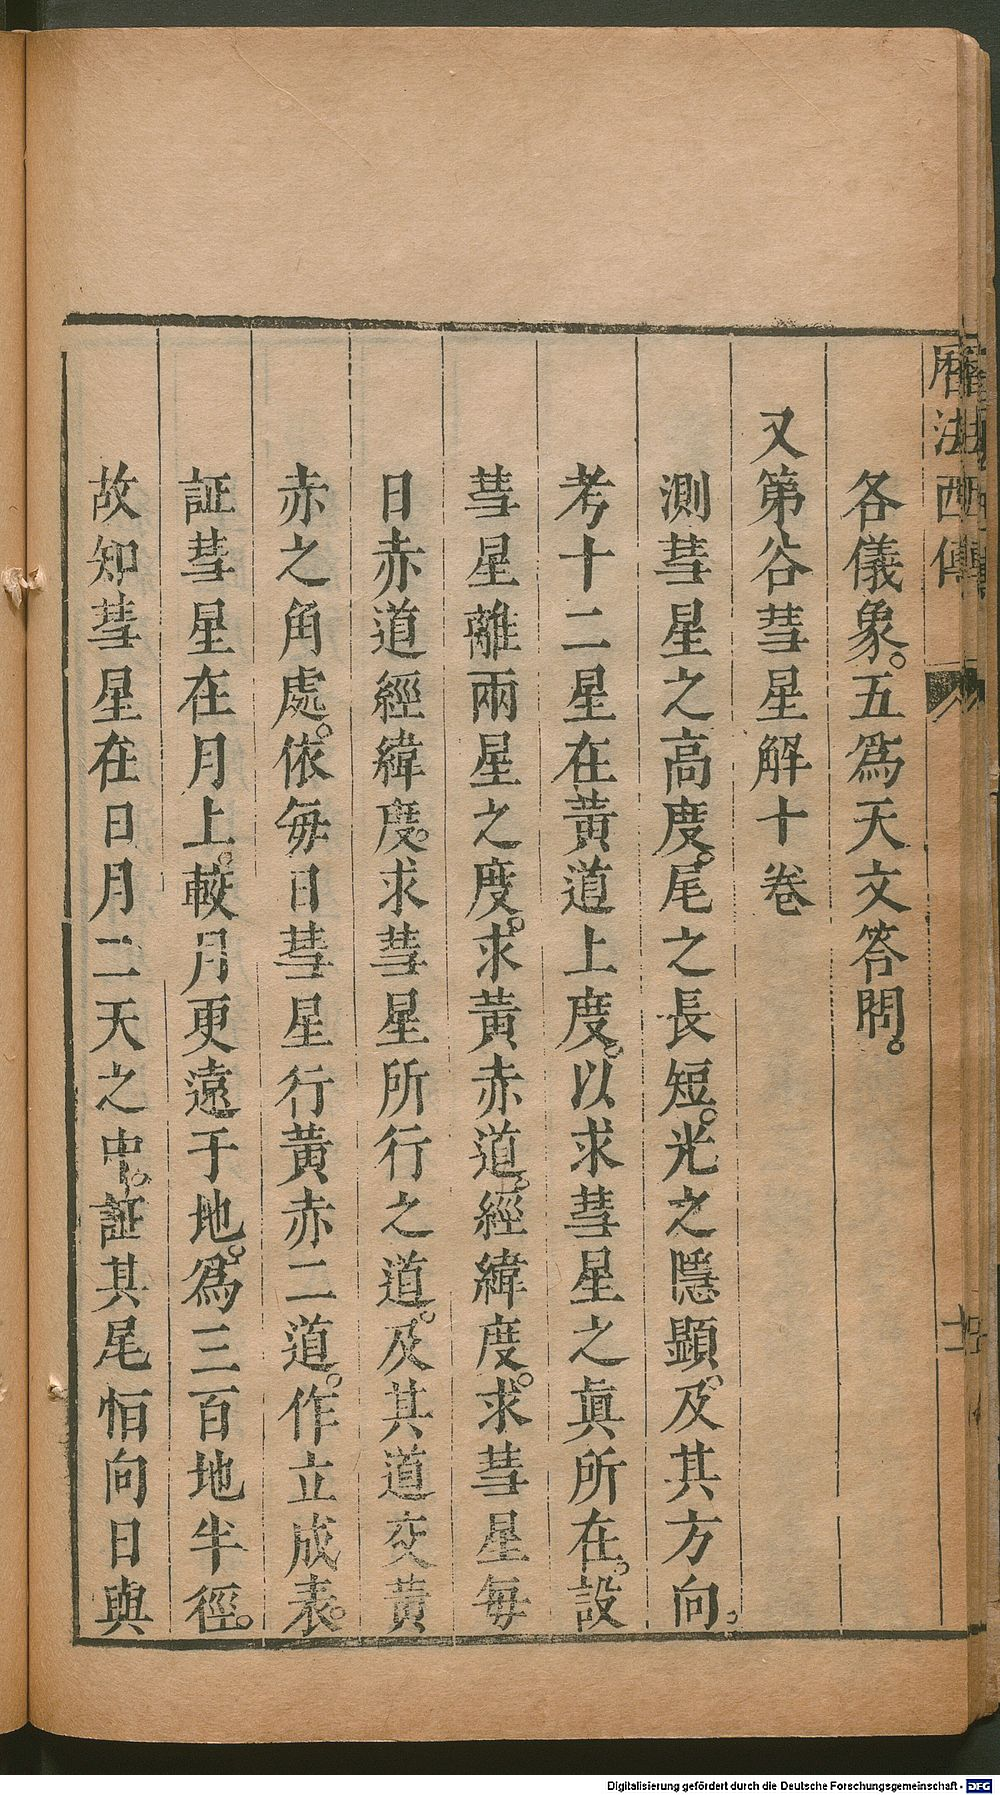 各儀象。五爲天文答問。
又第谷彗星解十卷
測彗星之高度。尾之長短。光之隱顯。及其方向。
考十二星在黃道上度。以求彗星之眞所在。設
彗星離兩星之度。求黃赤道。經緯度。求彗星每
日赤道經緯度。求彗星所行之道。及其道交黃
赤之角處。依每日彗星行黃赤二道。作立成表。
証彗星在月上。較月更遠于地。爲三百地半徑。
故知彗星在日月二天之中。証其尾恒向日與
曆法西傳
Digitalisierung gefördert durch die Deutsche Forschungsgemeinschaft - DFG